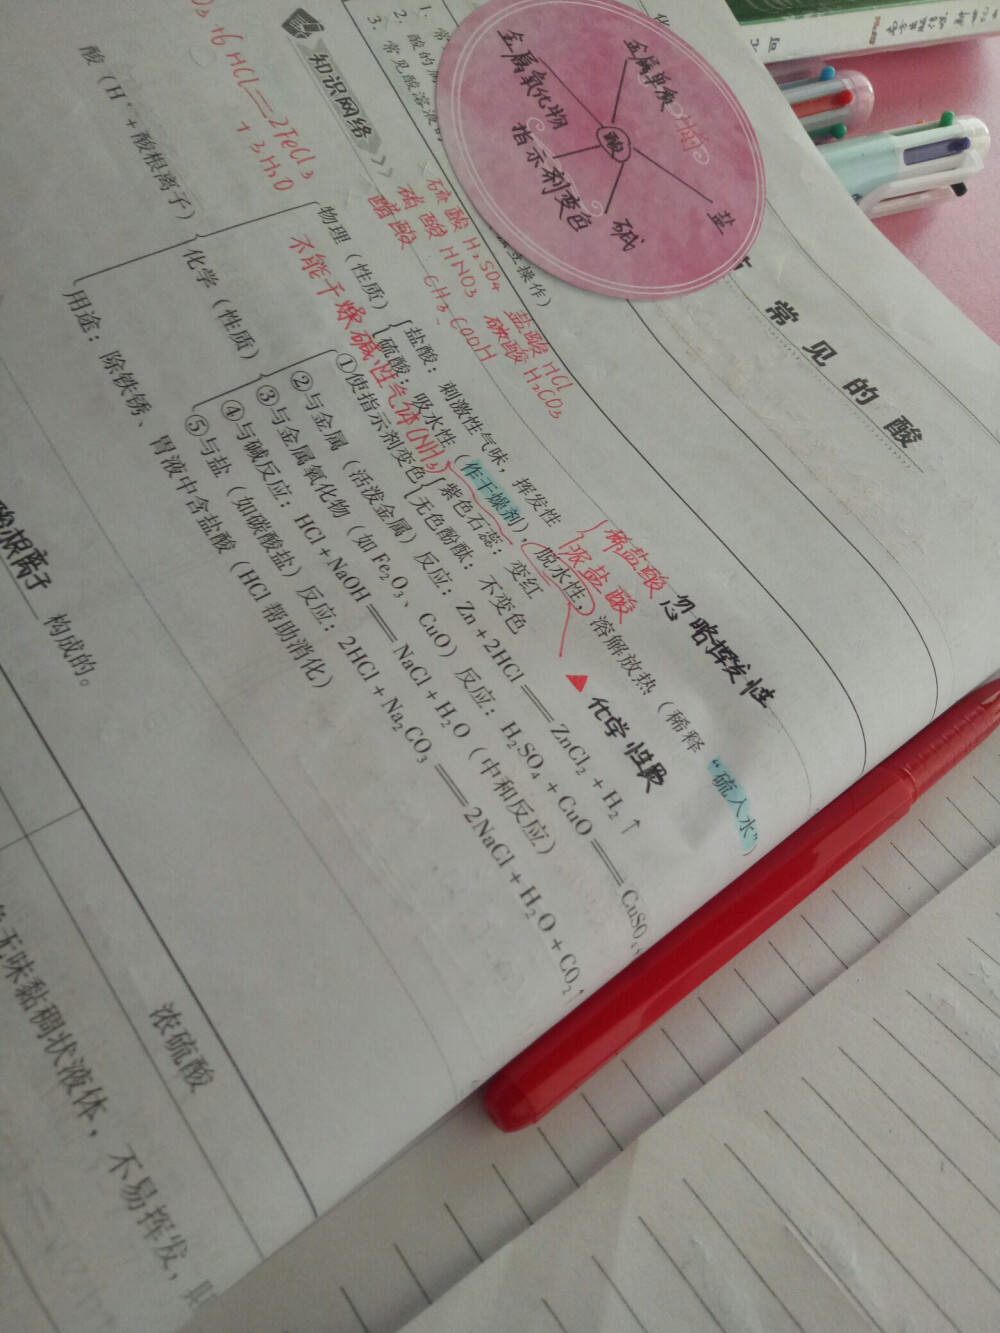 常见的酸
金属单质
金属氧化物
酸
盐
指示剂变色
碱
1. 常
2. 酸的
3. 常见酸溶液
操作）
知识网络
硫酸 H₂SO₄
盐酸 HCl
硝酸 HNO₃
碳酸 H₂CO₃
醋酸 CH₃COOH
6HCl＝2FeCl₃
+3H₂O
酸（H⁺+酸根离子）
物理（性质）
盐酸：刺激性气味，挥发性
稀盐酸
浓盐酸
忽略挥发性
硫酸：吸水性（作干燥剂），脱水性，溶解放热（稀释“硫入水”）
化学性质
不能干燥碱性气体(NH₃)
化学（性质）
①使指示剂变色
紫色石蕊：变红
无色酚酞：不变色
②与金属（活泼金属）反应：Zn+2HCl＝ZnCl₂+H₂↑
③与金属氧化物（如Fe₂O₃、CuO）反应：H₂SO₄+CuO＝CuSO₄+
④与碱反应：HCl+NaOH＝NaCl+H₂O（中和反应）
⑤与盐（如碳酸盐）反应：2HCl+Na₂CO₃＝2NaCl+H₂O+CO₂↑
用途：除铁锈、胃液中含盐酸（HCl帮助消化）
酸根离子 构成的。
浓硫酸
无味黏稠状液体，不易挥发，